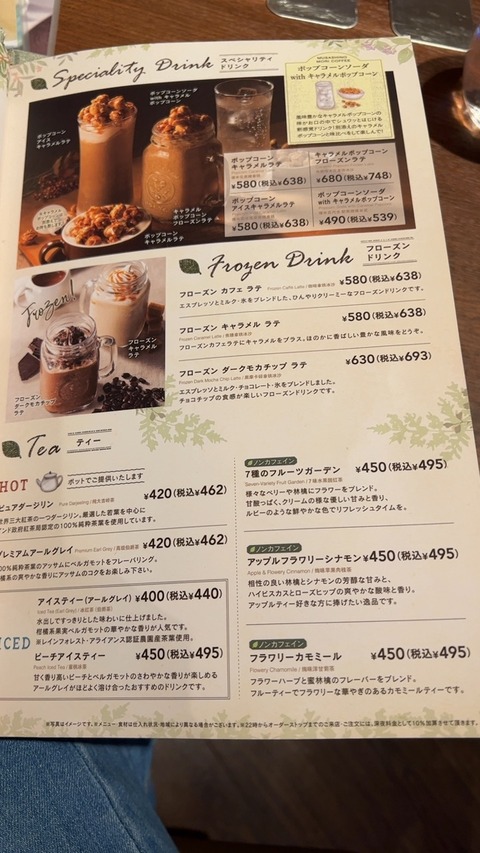 Speciality Drink スペシャリティ
ドリンク
MUSASHINO
MORI COFFEE
ポップコーンソーダ
with キャラメルポップコーン
風味豊かなキャラメルポップコーンの
味がお口の中でシュワッとはじける
新感覚ドリンク!別添えのキャラメル
ポップコーンと味比べをして楽しんで!
ポップコーンソーダ
with キャラメル
ポップコーン
ポップコーン
アイス
キャラメルラテ
キャラメル
ポップコーン
フローズンラテ
ポップコーン
キャラメルラテ
ポップコーン
キャラメルラテ
¥580(税込¥638)
キャラメルポップコーン
フローズンラテ
¥680(税込¥748)
ポップコーン
アイスキャラメルラテ
¥580(税込¥638)
ポップコーンソーダ
with キャラメルポップコーン
¥490(税込¥539)
Frozen Drink フローズン
ドリンク
Frozen!
フローズン
キャラメル
ラテ
フローズン
ダークモカチップ
ラテ
フローズン カフェ ラテ Frozen Café Latte ¥580(税込¥638)
エスプレッソとミルク・氷をブレンドした、ひんやりクリーミーなフローズンドリンクです。
フローズン キャラメル ラテ ¥580(税込¥638)
Frozen Caramel Latte
フローズンカフェラテにキャラメルをプラス。ほのかに香ばしい豊かな風味をどうぞ。
フローズン ダークモカチップ ラテ ¥630(税込¥693)
Frozen Dark Mocha Chip Latte
エスプレッソとミルク・チョコレート・氷をブレンドしました。
チョコチップの食感が楽しいフローズンドリンクです。
Tea ティー
HOT ポットでご提供いたします
ピュアダージリン Pure Darjeeling ¥420(税込¥462)
世界三大紅茶の一つダージリン。厳選した若葉を中心に
ンド政府紅茶局認定の100%純粋茶葉を使用しています。
プレミアムアールグレイ Premium Earl Grey ¥420(税込¥462)
00%純粋茶葉のアッサムにベルガモットをフレーバリング。
橘系の爽やかな香りにアッサムのコクをお楽しみ下さい。
ICED
アイスティー(アールグレイ) ¥400(税込¥440)
Iced Tea (Earl Grey)
水出しですっきりとした味わいに仕上げました。
柑橘系果実ベルガモットの華やかな香りが人気です。
※レインフォレスト・アライアンス認証農園産茶葉使用。
ピーチアイスティー ¥450(税込¥495)
Peach Iced Tea
甘く香り高いピーチとベルガモットのさわやかな香りが楽しめる
アールグレイがほどよく溶け合ったおすすめのドリンクです。
#ノンカフェイン
7種のフルーツガーデン ¥450(税込¥495)
Seven-Variety Fruit Garden
様々なベリーや林檎にフラワーをブレンド。
甘酸っぱく、クリームの様な優しい甘みと香り、
ルビーのような鮮やかな色でリフレッシュタイムを。
#ノンカフェイン
アップルフラワリーシナモン ¥450(税込¥495)
Apple & Flowery Cinnamon
相性の良い林檎とシナモンの芳醇な甘みと、
ハイビスカスとローズヒップの爽やかな酸味と香り。
アップルティー好きな方に捧げたい逸品です。
#ノンカフェイン
フラワリーカモミール ¥450(税込¥495)
Flowery Chamomile
フラワーハーブと蜜林檎のフレーバーをブレンド。
フルーティーでフラワリーな華やぎのあるカモミールティーです。
※写真はイメージです。※メニュー・食材は仕入れ状況・地域により異なる場合がございます。※22時からオーダーストップまでのご来店・ご注文には、深夜料金として10%加算させて頂きます。